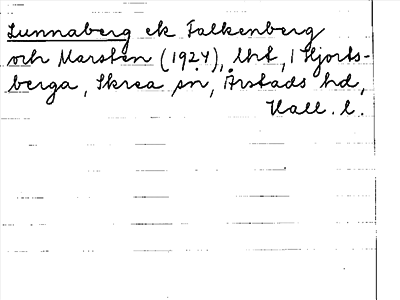 Lunnaberg ek Falkenberg
och Marsten (1924), lht, i Hjorts-
berga, Skrea sn, Årstads hd,
Hall. l.